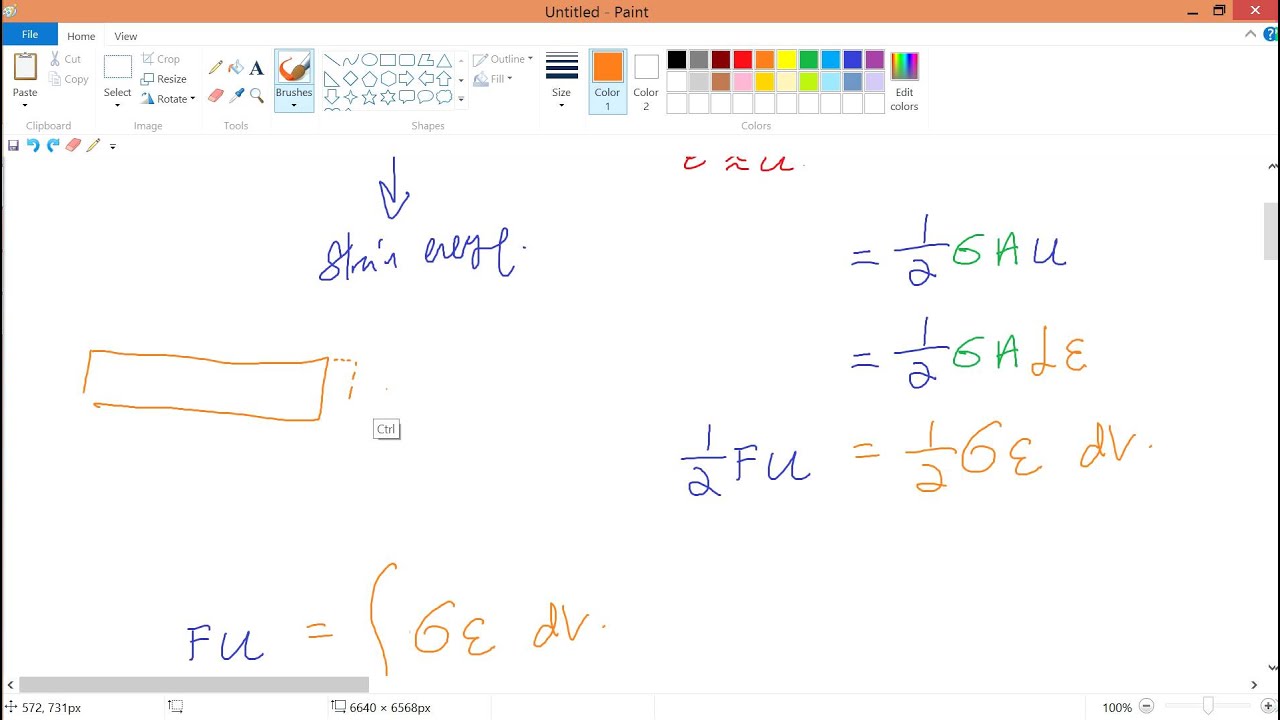 Untitled - Paint
File Home View
Paste Cut Copy Clipboard
Select Crop Resize Rotate Image
Tools
Brushes
Shapes Outline Fill
Size
Color 1 Color 2 Edit colors Colors
ε ≈ u.
Strain energy.
= 1/2 σ A u
= 1/2 σ A L ε
Ctrl
1/2 F u = 1/2 σ ε dV.
F u = ∫ σ ε dV.
572, 731px 6640 × 6568px 100%